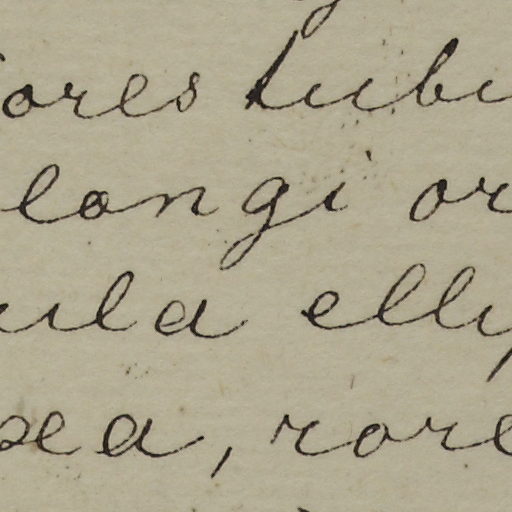 ores tubu
longi or
ula ellip
sea, rore